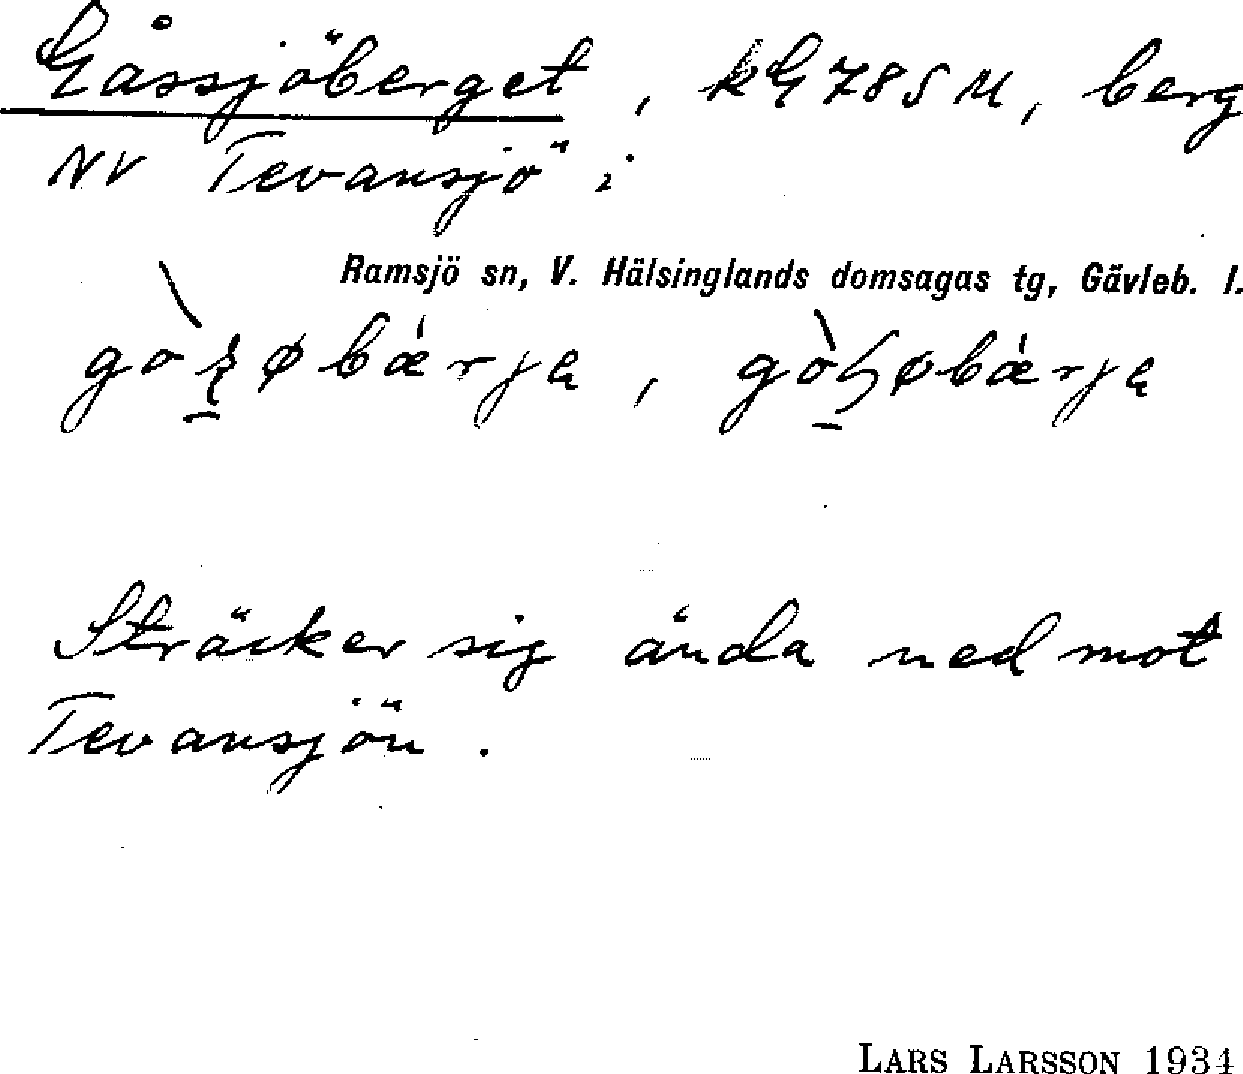 Gåssjöberget, kG 785 M, berg
NV Tevansjö i
Ramsjö sn, V. Hälsinglands domsagas tg, Gävleb. l.
Sträcker sig ända ned mot
Tevansjön.
LARS LARSSON 1934